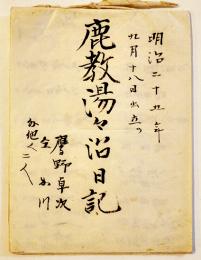 明治二十五年
九月十八日出立つ
鹿教湯々治日記
鷹野卓次
仝 女川
外他人二人